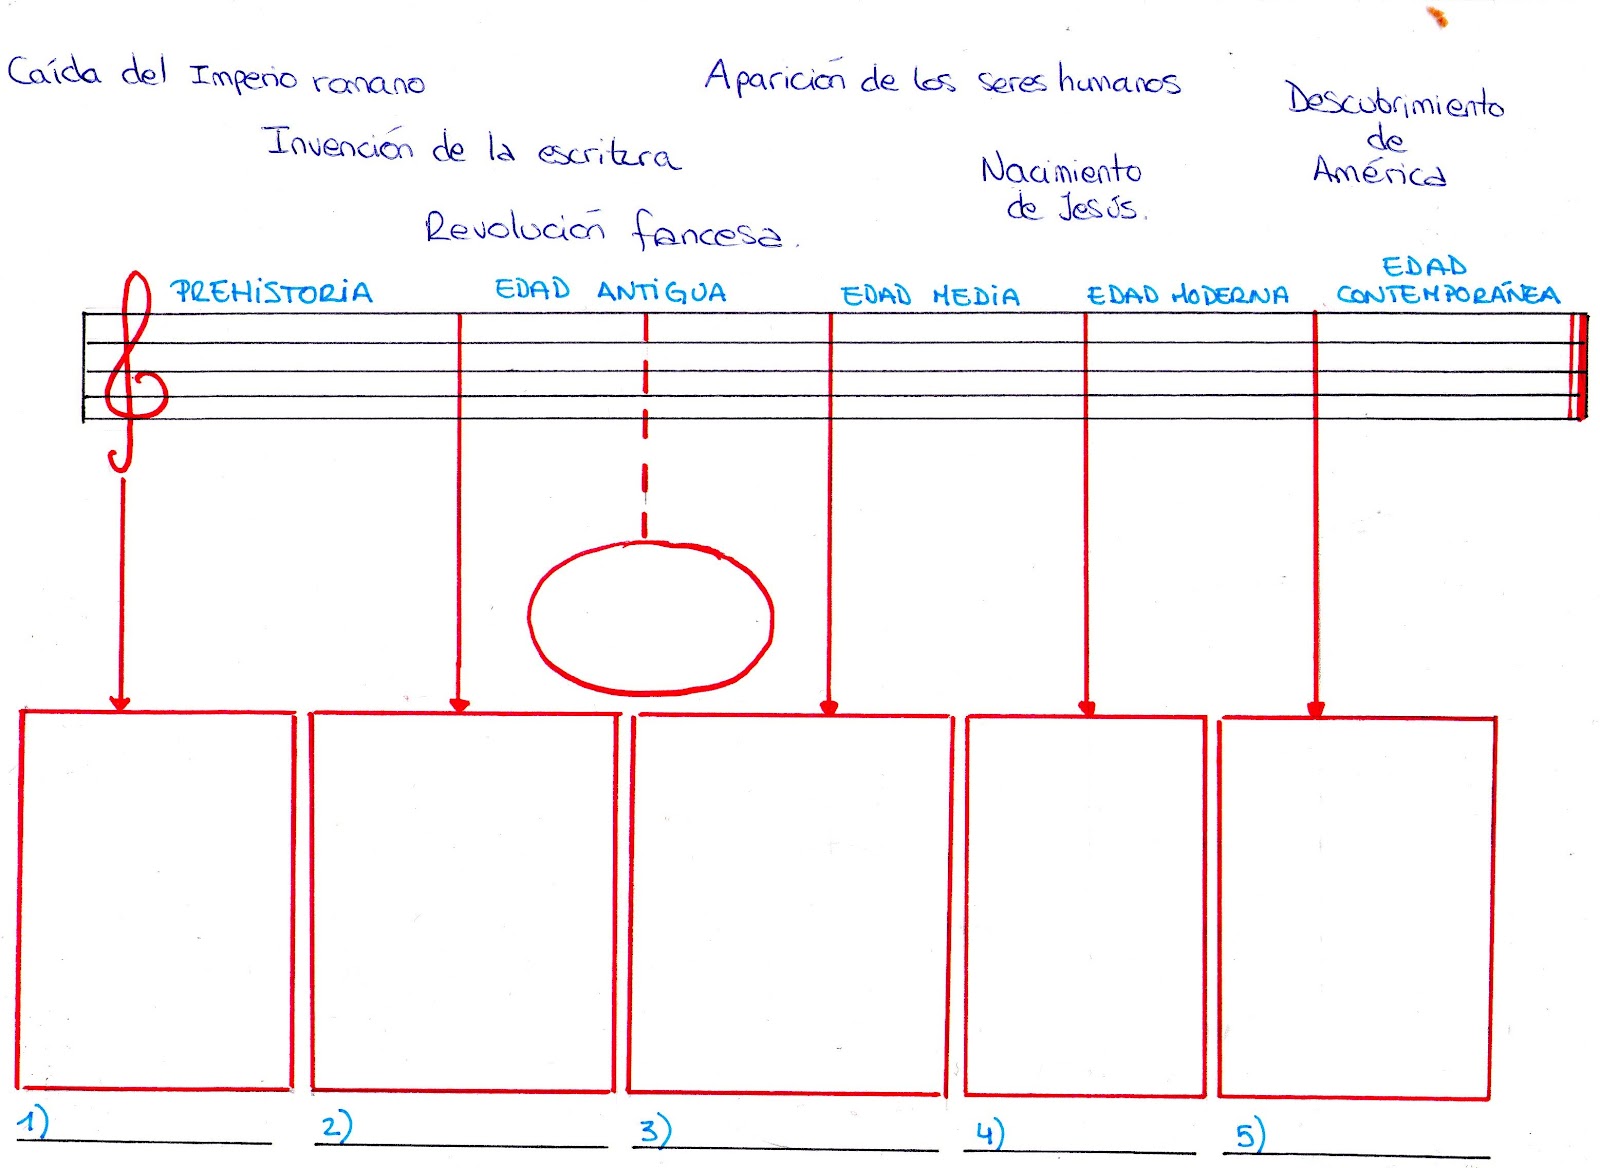 Caída del Imperio romano
Aparición de los seres humanos
Descubrimiento
de
América
Invención de la escritura
Nacimiento
de Jesús.
Revolución fancesa.
PREHISTORIA
EDAD ANTIGUA
EDAD MEDIA
EDAD MODERNA
EDAD
CONTEMPORÁNEA
1)
2)
3)
4)
5)